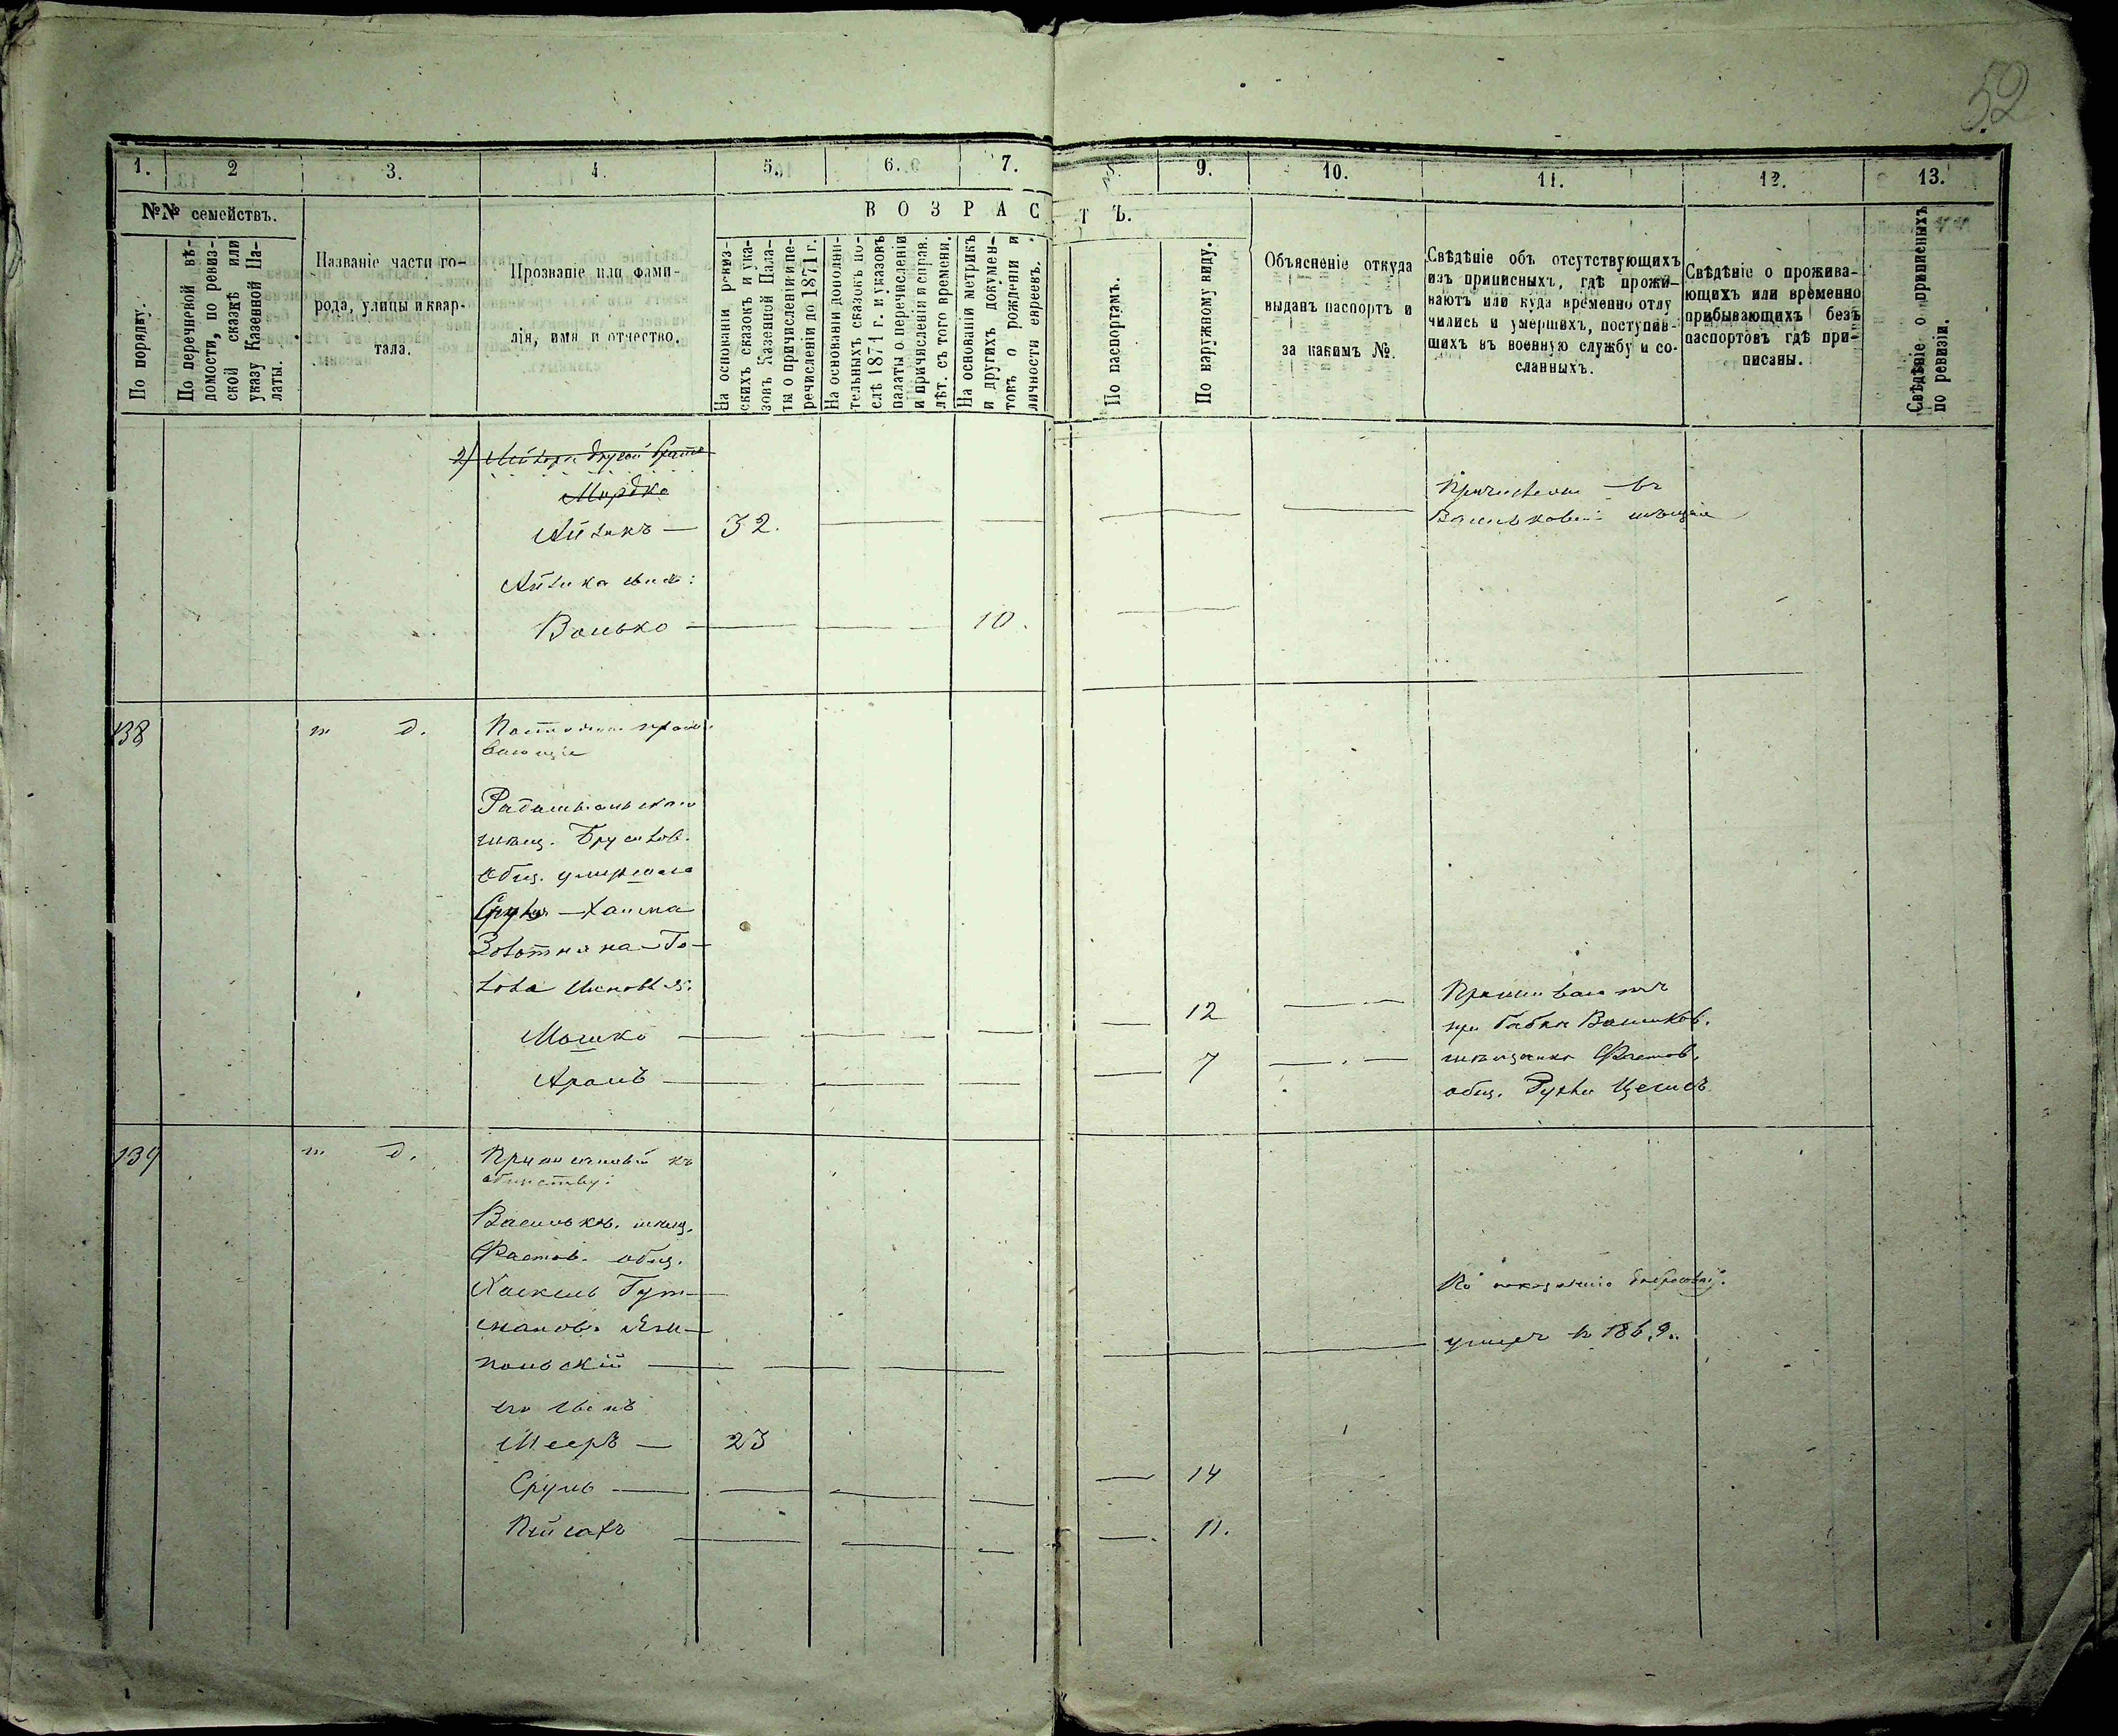 52
1. 2 3. 4. 5. 6. 7. 9. 10. 11. 12. 13.
№№ семействъ.
По порядку.
По перечневой вѣ-
домости, по ревиз-
ской сказкѣ или
указу Казенной Па-
латы.
Названіе части го-
рода, улицы и квар-
тала.
Прозваніе или фами-
лія, имя и отчество.
ВОЗРАСТЪ.
На основаніи ревиз-
скихъ сказокъ и ука-
зовъ Казенной Пала-
ты о причисленіи и пе-
речисленіи до 1871 г.
На основаніи дополни-
тельныхъ сказокъ по-
слѣ 1871 г. и указовъ
палаты о перечисленіи
и причисленіи и справ.
лѣт. съ того времени.
На основаніи метрикъ
и другихъ докумен-
товъ о рожденіи и
личности евреевъ.
По паспортамъ.
По наружному виду.
Объясненіе откуда
выданъ паспортъ и
за какимъ №.
Свѣдѣніе объ отсутствующихъ
изъ приписныхъ, гдѣ прожи-
ваютъ или куда временно отлу
чились и умершихъ, поступив-
шихъ въ военную службу и со-
сланныхъ.
Свѣдѣніе о прожива-
ющихъ или временно
прибывающихъ безъ
паспортовъ гдѣ при-
писаны.
Свѣдѣніе о приписныхъ
по ревизіи.
2) другой братъ
Мордко
Айзикъ — 32.
Айзика сынъ:
Волько — 10.
Причисленъ въ
Васильковскіе мѣщане
138 т д.
вающіе
мѣщ. Брусилов.
общ. умершаго
Сруля-Хаима
Золотника-Го-
лова сыновья:
Мошко — 12
Аронъ — 7
Проживаютъ
при бабкѣ Васильков.
мѣщанкѣ Фастов.
общ. Рухли
139 т д.
Приписанный къ
обществу:
Васильков. мѣщ.
Фастов. общ.
Хаскель Гут-
мановъ Ям-
польскій
его сынъ
Мееръ — 23
Сруль — 14
Пейсахъ — 11.
По показанію
умеръ въ 1869.